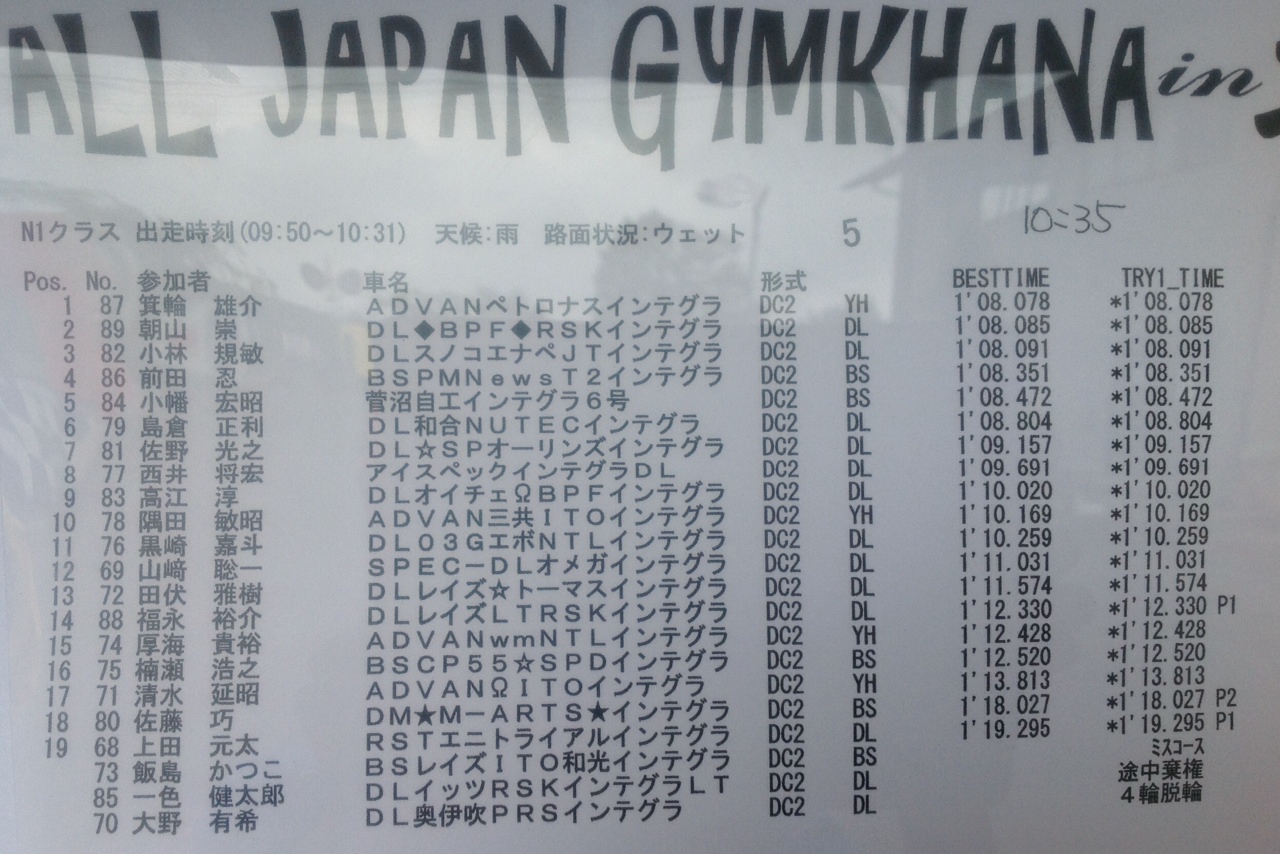 ALL JAPAN GYMKHANA in
N1クラス 出走時刻(09:50～10:31) 天候:雨 路面状況:ウェット 5 10:35
Pos. No. 参加者 車名 形式 BESTTIME TRY1_TIME
1 87 箕輪 雄介 ＡＤＶＡＮペトロナスインテグラ DC2 YH 1'08.078 *1'08.078
2 89 朝山 崇 ＤＬ◆ＢＰＦ◆ＲＳＫインテグラ DC2 DL 1'08.085 *1'08.085
3 82 小林 規敏 ＤＬスノコエナペＪＴインテグラ DC2 DL 1'08.091 *1'08.091
4 86 前田 忍 ＢＳＰＭＮｅｗｓＴ２インテグラ DC2 BS 1'08.351 *1'08.351
5 84 小幡 宏昭 菅沼自工インテグラ６号 DC2 BS 1'08.472 *1'08.472
6 79 島倉 正利 ＤＬ和合ＮＵＴＥＣインテグラ DC2 DL 1'08.804 *1'08.804
7 81 佐野 光之 ＤＬ☆ＳＰオーリンズインテグラ DC2 DL 1'09.157 *1'09.157
8 77 西井 将宏 アイスペックインテグラＤＬ DC2 DL 1'09.691 *1'09.691
9 83 高江 淳 ＤＬオイチェΩＢＰＦインテグラ DC2 DL 1'10.020 *1'10.020
10 78 隅田 敏昭 ＡＤＶＡＮ三共ＩＴＯインテグラ DC2 YH 1'10.169 *1'10.169
11 76 黒崎 嘉斗 ＤＬ０３ＧエボＮＴＬインテグラ DC2 DL 1'10.259 *1'10.259
12 69 山﨑 聡一 ＳＰＥＣ－ＤＬオメガインテグラ DC2 DL 1'11.031 *1'11.031
13 72 田伏 雅樹 ＤＬレイズ☆トーマスインテグラ DC2 DL 1'11.574 *1'11.574
14 88 福永 裕介 ＤＬレイズＬＴＲＳＫインテグラ DC2 DL 1'12.330 *1'12.330 P1
15 74 厚海 貴裕 ＡＤＶＡＮｗｍＮＴＬインテグラ DC2 YH 1'12.428 *1'12.428
16 75 楠瀬 浩之 ＢＳＣＰ５５☆ＳＰＤインテグラ DC2 BS 1'12.520 *1'12.520
17 71 清水 延昭 ＡＤＶＡＮΩＩＴＯインテグラ DC2 YH 1'13.813 *1'13.813
18 80 佐藤 巧 ＤＭ★Ｍ－ＡＲＴＳ★インテグラ DC2 BS 1'18.027 *1'18.027 P2
19 68 上田 元太 ＲＳＴエニトライアルインテグラ DC2 DL 1'19.295 *1'19.295 P1
73 飯島 かつこ ＢＳレイズＩＴＯ和光インテグラ DC2 BS ﾐｽｺｰｽ
85 一色 健太郎 ＤＬイッツＲＳＫインテグラＬＴ DC2 DL 途中棄権
70 大野 有希 ＤＬ奥伊吹ＰＲＳインテグラ DC2 DL ４輪脱輪